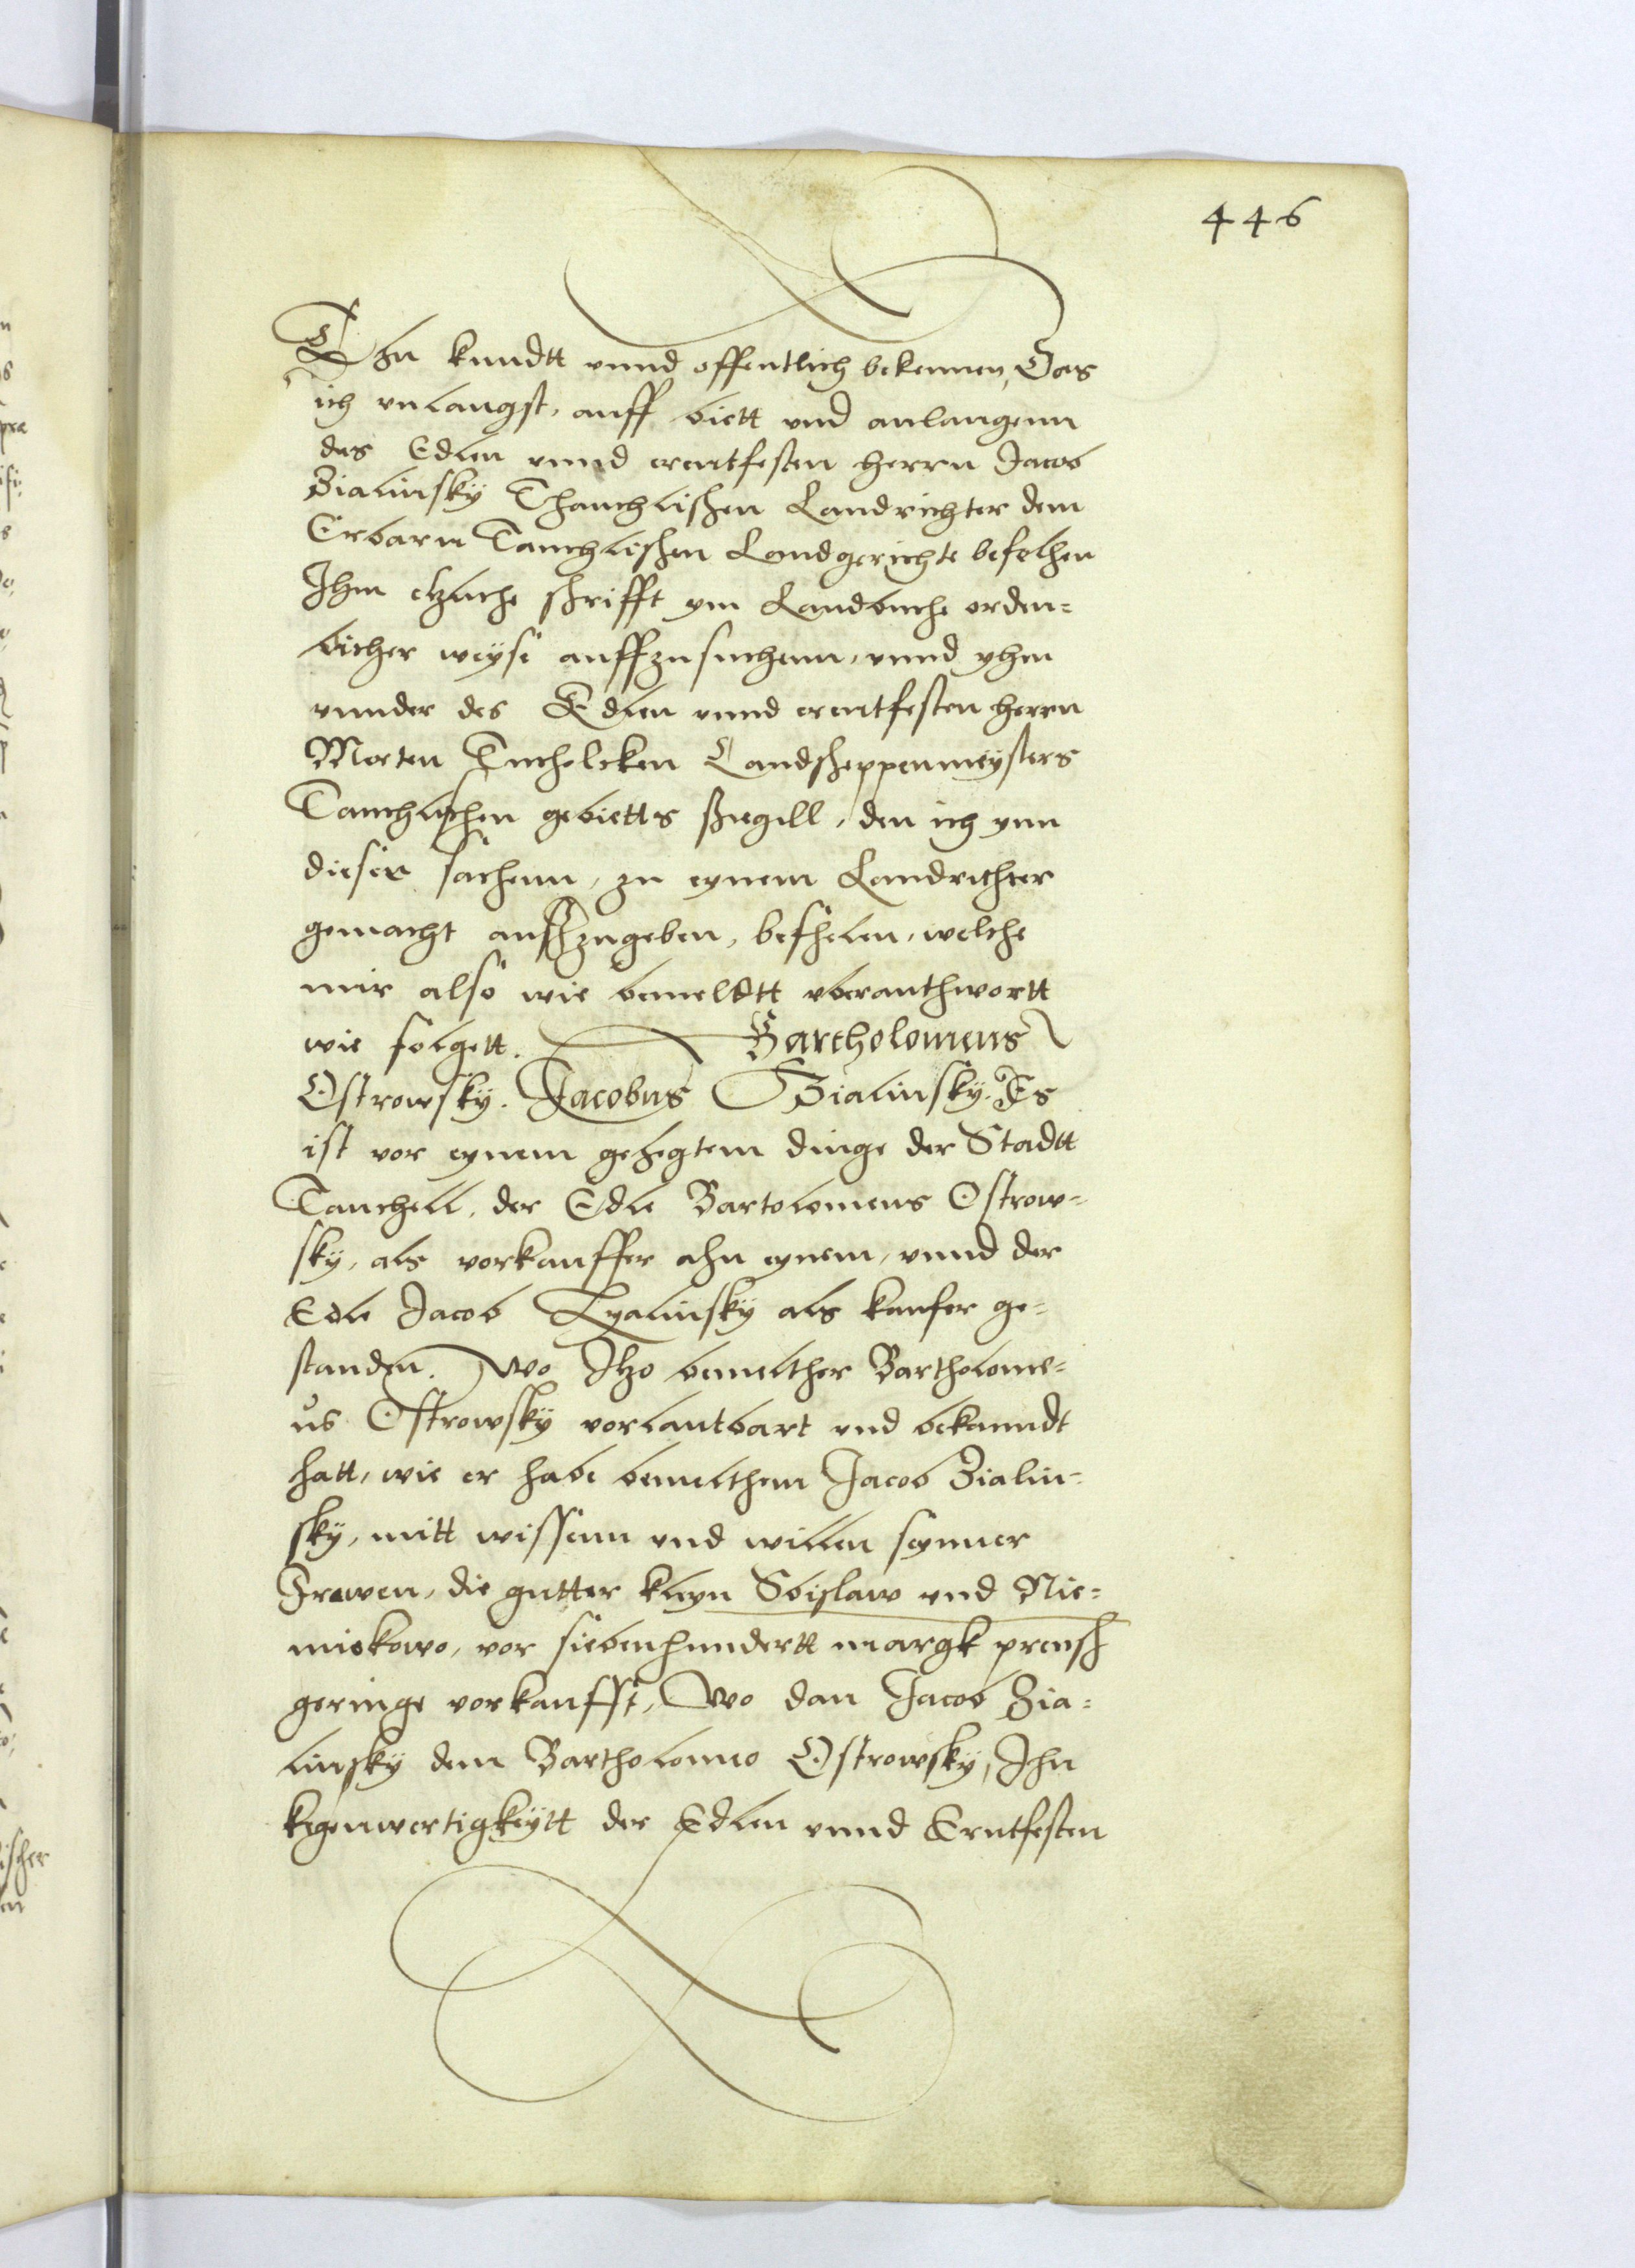 446
Thu kundtt vnnd offentlich bekennen, Das
ich vnlangst, auff biett vnd anlangenn
des Edlen vnnd erentfesten herrn Jacob
Zialinsky Thauchlischen Landrichter dem
Erbarn Tauchlischen Landgerichte befolhen
Ihm etzliche schrifft ym Landbuche orden=
licher weyse auffzusuchenn, vnnd yhm
vnnder des Edlen vnnd erentfesten herrn
Merten Tucholcken Landscheppenmeysters
Tauchlischen gebiettes siegill, den ich ynn
dieser sachenn, zu eynem Landrichter
gemacht auszugeben, befhelen, welche
mir also wie bemeldtt vberanthwortt
wie folgett. Bartholomeus
Ostrowsky. Jacobus Zialinsky. Es
ist vor eynem gehegtem dinge der Stadtt
Tauchell, der Edle Bartolomeus Ostrow=
sky, als vorkauffer ahn eynem, vnnd der
Edle Jacob Zyalinsky als kaufer ge=
standen. Wo Itzo bemelther Bartholome=
us Ostrowsky vorlautbart vnd bekanndt
hatt, wie er habe bemelthem Jacob Zialin=
sky, mitt wissenn vnd willen seynner
Frawen, die gutter kleyn Sbislaw vnd Nie=
miekowo, vor siebenhundertt margk preusch
geringe vorkaufft, Wo dan Jacob Zia=
linsky dem Bartholomeo Ostrowsky, Ihn
kegenwertigkeytt der Edlen vnnd Erntfesten